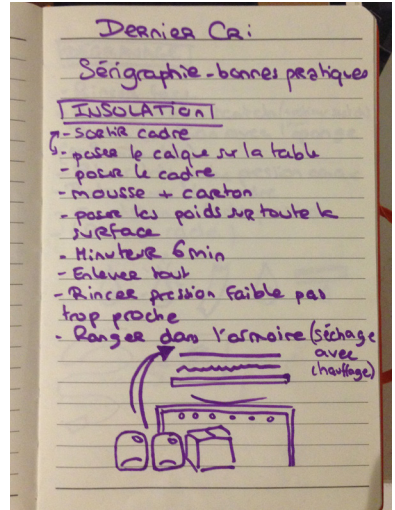 Dernier Cri :
Sérigraphie - bonnes pratiques
INSOLATION
- Sortir cadre
- poser le calque sur la table
- poser le cadre
- mousse + carton
- poser les poids sur toute la
surface
- Minuteur 6 min
- Enlever tout
- Rincer pression faible pas
trop proche
- Ranger dans l'armoire (séchage
avec
chauffage)